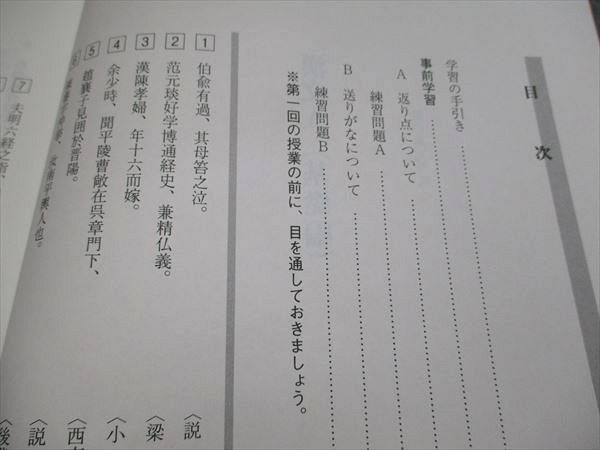 目次
学習の手引き
事前学習
A 返り点について
練習問題A
B 送りがなについて
練習問題B
※第一回の授業の前に、目を通しておきましょう。
1 伯兪有過、其母笞之泣。〈説
2 范元琰好学博通経史、兼精仏義。〈梁
3 漢陳孝婦、年十六而嫁。〈小
4 余少時、聞平陵曹敞在呉章門下、〈西
5 趙襄子見囲於晋陽。〈説
6
7 夫明六経之指、